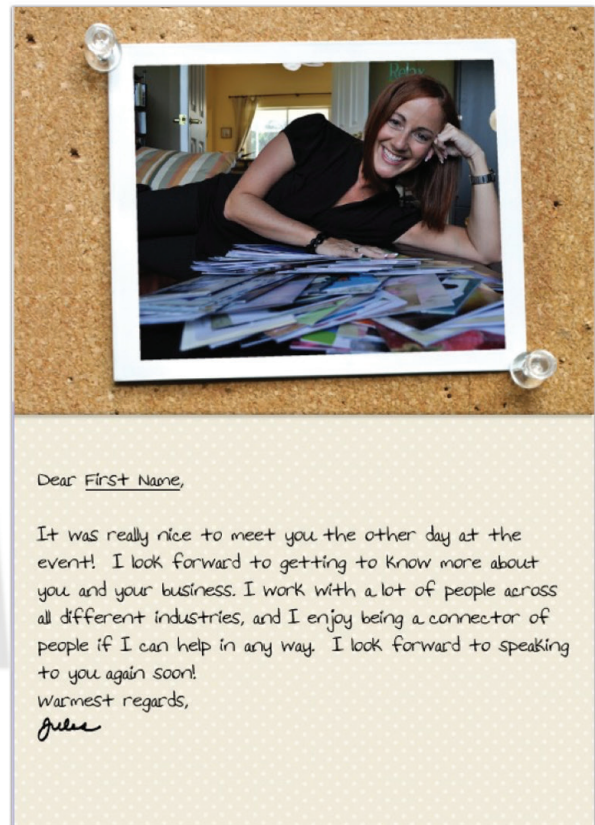 Relax
Dear First Name,
It was really nice to meet you the other day at the
event! I look forward to getting to know more about
you and your business. I work with a lot of people across
all different industries, and I enjoy being a connector of
people if I can help in any way. I look forward to speaking
to you again soon!
Warmest regards,
Jules